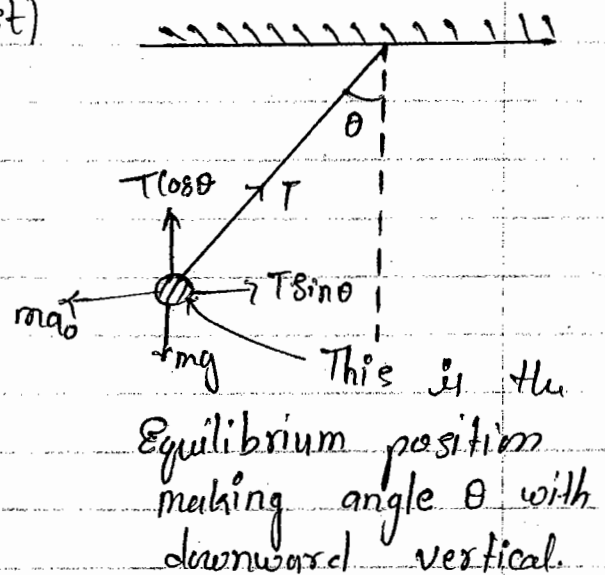 it)
θ
Tcosθ
T
Tsinθ
ma₀
mg
This is the
Equilibrium position
making angle θ with
downward vertical.